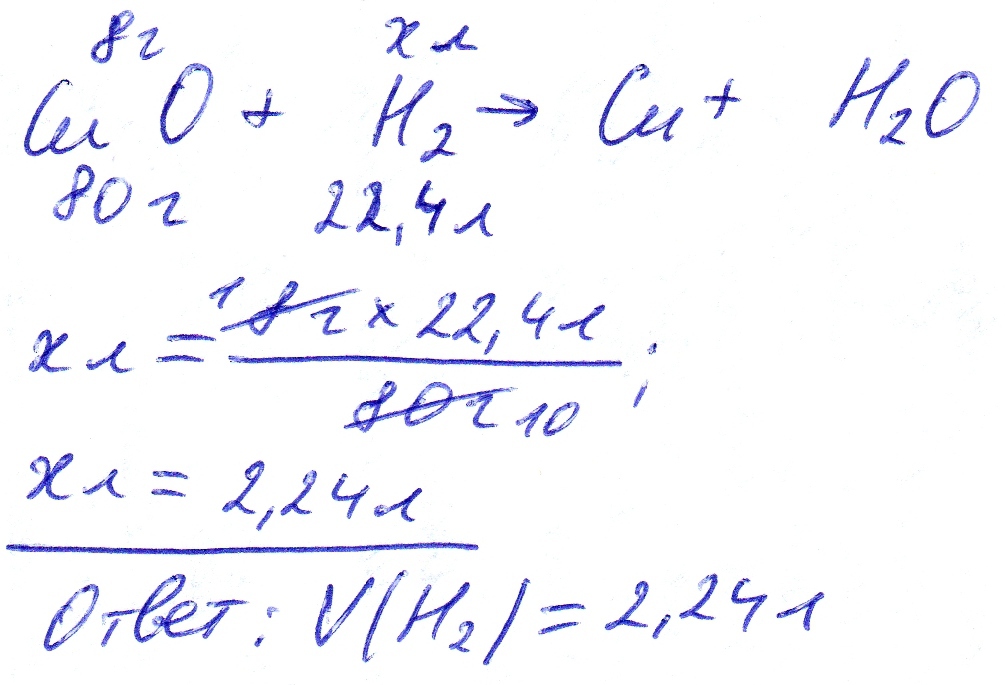 8г х л
CuO + H₂ → Cu + H₂O
80 г 22,4 л
х л = 1 8 г × 22,4 л / 80 г 10 ;
х л = 2,24 л
Ответ: V(H₂) = 2,24 л